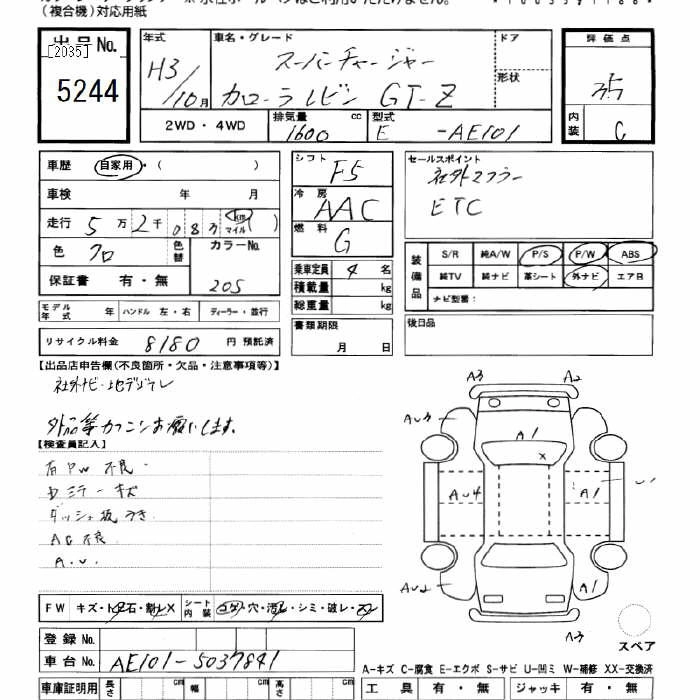 (複合機)対応用紙
出品No.
[2035]
5244
年式
H3/10月
車名・グレード
スーパーチャージャー
カローラレビン GT-Z
ドア
形状
評価点
3.5
内装
C
2WD・4WD
排気量
1600 cc
型式
E -AE101
車歴 自家用・( )
車検 年 月
走行 5万2千083 km マイル ( )
色 クロ 色替
カラーNo.
205
保証書 有・無
モデル年式 年 ハンドル 左・右 ディーラー・並行
リサイクル料金 8180 円 預託済
シフト
F5
冷房
AAC
燃料
G
乗車定員 4 名
積載量 kg
総重量 kg
書類期限
月 日
セールスポイント
社外マフラー
ETC
装備品
S/R 純A/W P/S P/W ABS
純TV 純ナビ 革シート 外ナビ エアB
ナビ型番:
後日品
【出品店申告欄(不良箇所・欠品・注意事項等)】
社外ナビ・地デジTV
外品等カクニンお願いします。
【検査員記入】
右PW不良
ダッシュ板うき
AC不良
A.U.
FW キズ・トビ石・割レX
シート内装 コゲ・穴・汚レ・シミ・破レ・スレ
登録No.
車台No. AE101-5037841
車庫証明用 長さ cm 幅 cm 高さ cm
A3 A2
AU3
A1
X
AU4 A1
AU2 A1
A3
スペア
A-キズ C-腐食 E-エクボ S-サビ U-凹ミ W-補修 XX-交換済
工具 有・無 ジャッキ 有・無